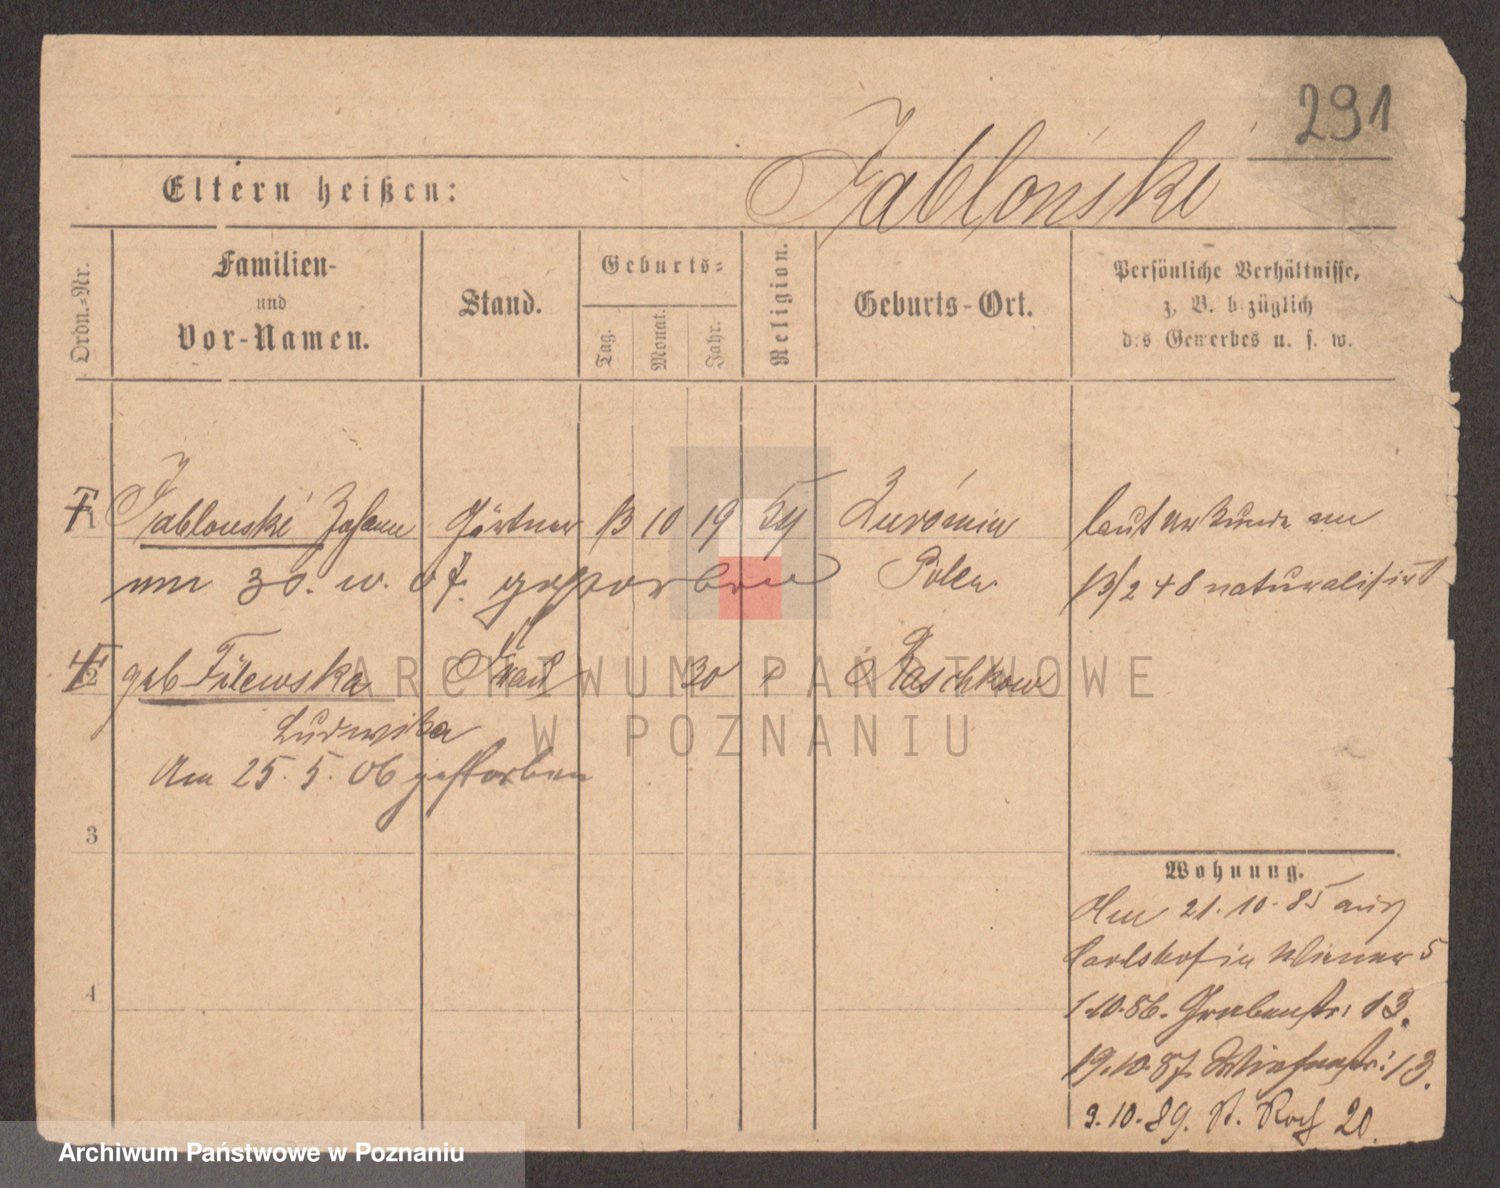 291
Jabloński
Eltern heißen:
Ordn.-Nr.
Familien-
und
Vor-Namen.
Stand.
Geburts-
Tag.
Monat.
Jahr.
Religion.
Geburts-Ort.
Persönliche Verhältnisse,
z. B. bezüglich
des Gewerbes u. s. w.
Jablonski Johann Gärtner 13 10 19
laut Urkunde am
am 30. gestorben Polen
13/2 48 naturalisirt
2 geb Filewska Frau 30 Raschkow
Ludwika
Am 25. 5. 06 gestorben
3
4
Wohnung.
Am 21. 10. 85 aus
Carlshof in 5
1.10.86. Grabenstr: 13.
19.10.87. 13.
9.10.89. St. Roch 20.
ARCHIWUM PAŃSTWOWE
W POZNANIU
Archiwum Państwowe w Poznaniu